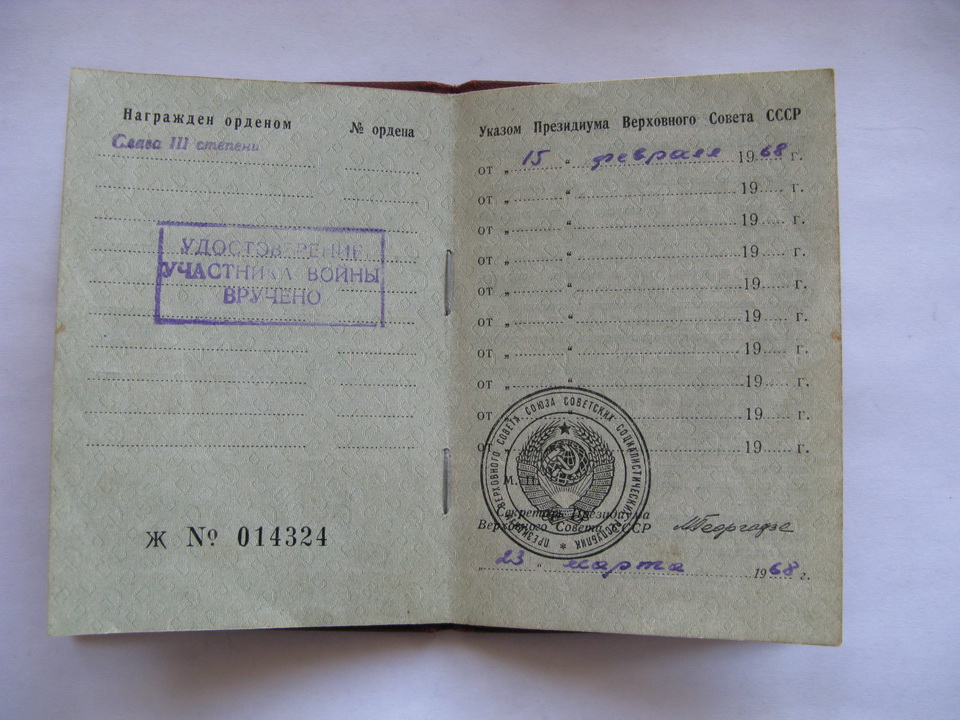 Награжден орденом № ордена
Слава III степени
УДОСТОВЕРЕНИЕ
УЧАСТНИКА ВОЙНЫ
ВРУЧЕНО
Ж № 014324
Указом Президиума Верховного Совета СССР
от „ 15 “ февраля 1968 г.
от „ “ 19 г.
от „ “ 19 г.
от „ “ 19 г.
от „ “ 19 г.
от „ “ 19 г.
от „ “ 19 г.
от „ “ 19 г.
от „ “ 19 г.
от „ “ 19 г.
ПРЕЗИДИУМ ВЕРХОВНОГО СОВЕТА СОЮЗА СОВЕТСКИХ СОЦИАЛИСТИЧЕСКИХ РЕСПУБЛИК
М. П.
Секретарь Президиума
Верховного Совета СССР МГеоргадзе
„ 23 “ марта 1968 г.